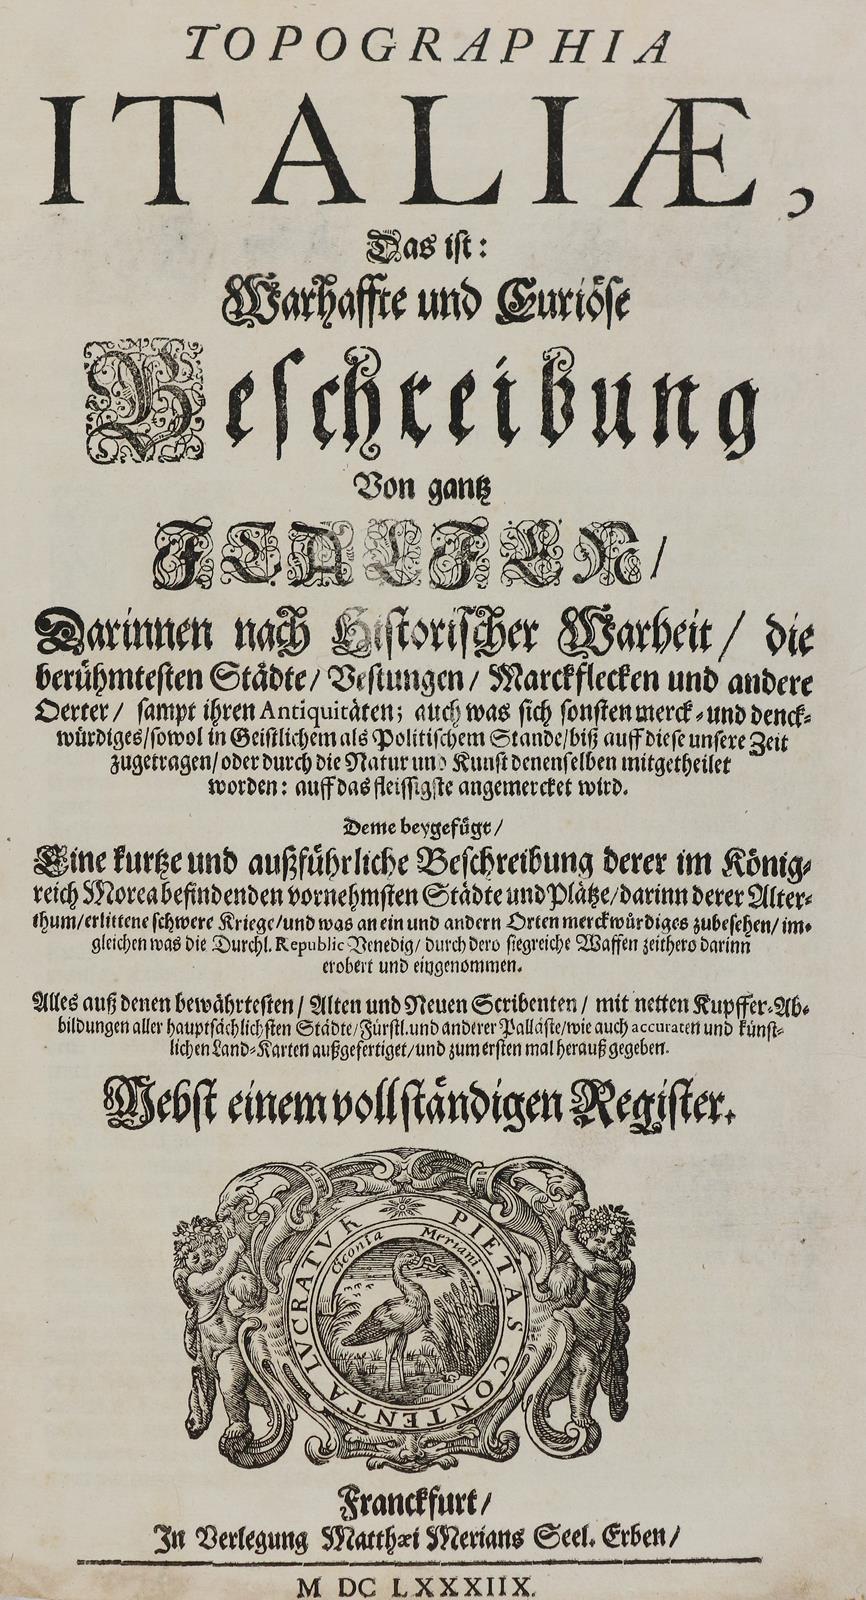 TOPOGRAPHIA
ITALIÆ,
Das ist:
Warhaffte und Curiöse
Beschreibung
Von gantz
ITALIEN/
Darinnen nach Historischer Warheit/ die
berühmtesten Städte/ Vestungen/ Marckflecken und andere
Oerter/ sampt ihren Antiquitäten; auch was sich sonsten merck- und denck-
würdiges/ sowol in Geistlichem als Politischem Stande/ biß auff diese unsere Zeit
zugetragen/ oder durch die Natur und Kunst denenselben mitgetheilet
worden: auff das fleissigste angemercket wird.
Deme beygefügt/
Eine kurtze und außführliche Beschreibung derer im König-
reich Morea befindenden vornehmsten Städte und Plätze/ darinn derer Alter-
thum/ erlittene schwere Kriege/ und was an ein und andern Orten merckwürdiges zubesehen/ im-
gleichen was die Durchl. Republic Venedig/ durch dero siegreiche Waffen zeithero darinn
erobert und eingenommen.
Alles auß denen bewährtesten/ Alten und Neuen Scribenten/ mit netten Kupffer-Ab-
bildungen aller hauptsächlichsten Städte/ Fürstl. und anderer Palläste/ wie auch accuraten und künst-
lichen Land-Karten außgefertiget/ und zum ersten mal herauß gegeben.
Nebst einem vollständigen Register.
PIETAS CONTENTA LVCRATVR
Ciconia Meriani.
Franckfurt/
In Verlegung Matthæi Merians Seel. Erben/
M DC LXXXIIX.